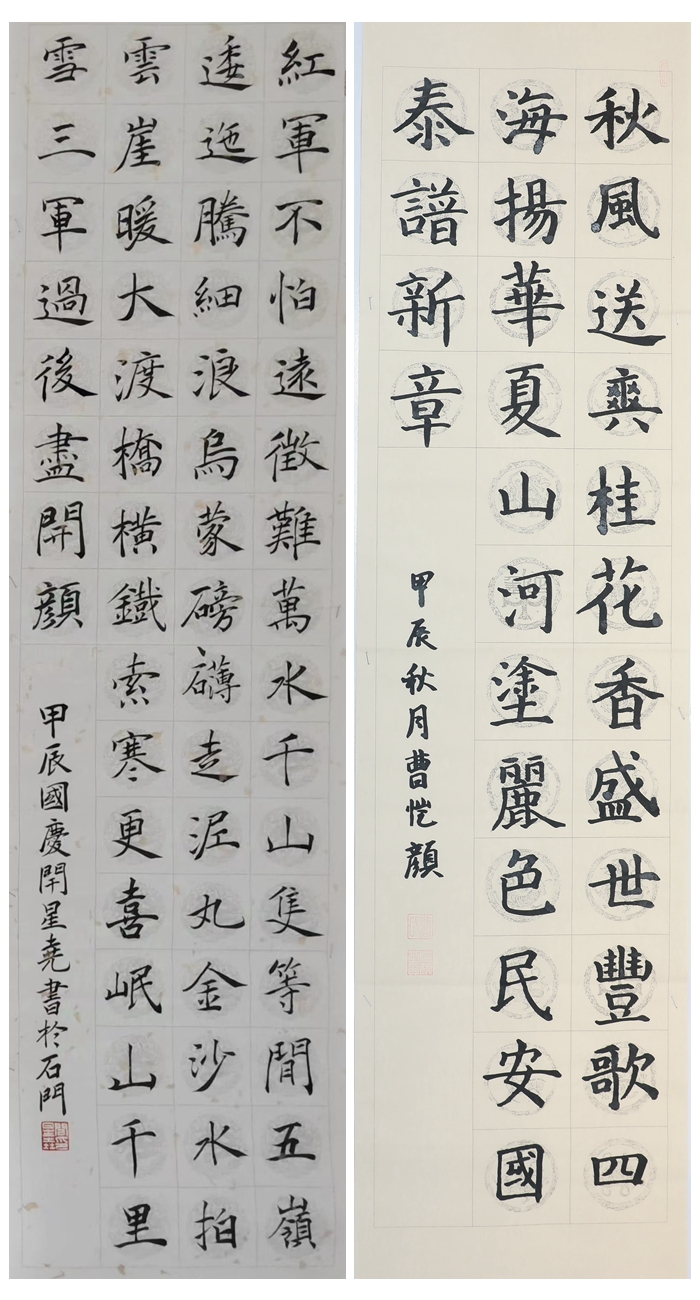 紅軍不怕遠徵難萬水千山隻等閒五嶺
逶迤騰細浪烏蒙磅礴走泥丸金沙水拍
雲崖暖大渡橋橫鐵索寒更喜岷山千里
雪三軍過後盡開顏
甲辰國慶開星堯書於石門
秋風送爽桂花香盛世豐歌四
海揚華夏山河塗麗色民安國
泰譜新章
甲辰秋月曹恺顏